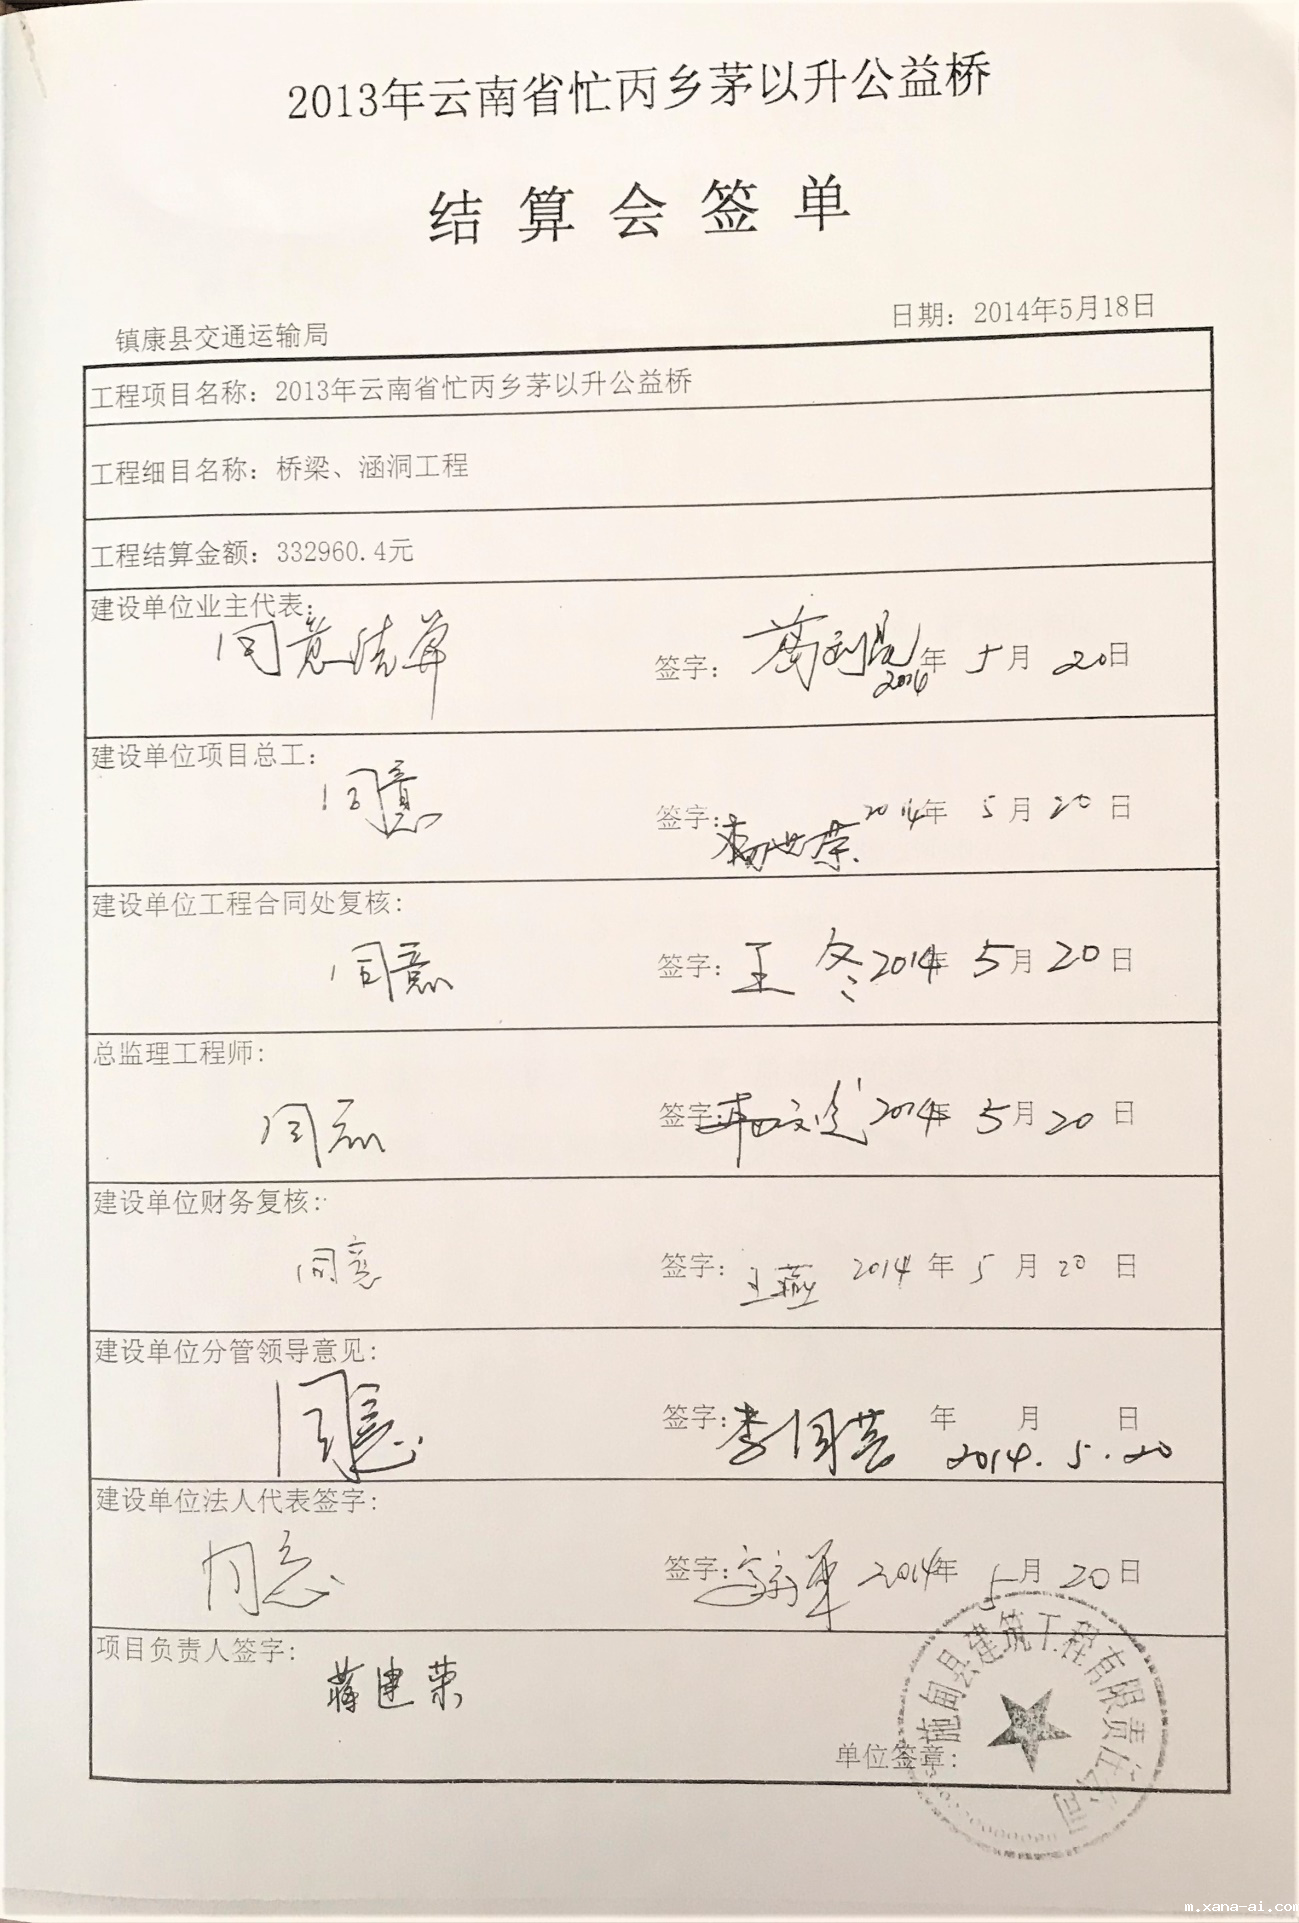 2013年云南省忙丙乡茅以升公益桥
结算会签单
镇康县交通运输局
日期：2014年5月18日
工程项目名称：2013年云南省忙丙乡茅以升公益桥
工程细目名称：桥梁、涵洞工程
工程结算金额：332960.4元
建设单位业主代表：
同意结算
签字： 年 5月 20日
2014
建设单位项目总工：
同意
签字：杨世荣 2014年 5月 20日
建设单位工程合同处复核：
同意
签字：王冬 2014年 5月 20日
总监理工程师：
同意
签字： 2014年 5月 20日
建设单位财务复核：
同意
签字：王燕 2014年 5月 20日
建设单位分管领导意见：
同意
签字：李国芸 年 月 日
2014.5.20
建设单位法人代表签字：
同意
签字： 2014年 5月 20日
项目负责人签字：
蒋建荣
单位签章：
施甸县建筑工程有限责任公司
m.xana-ai.com